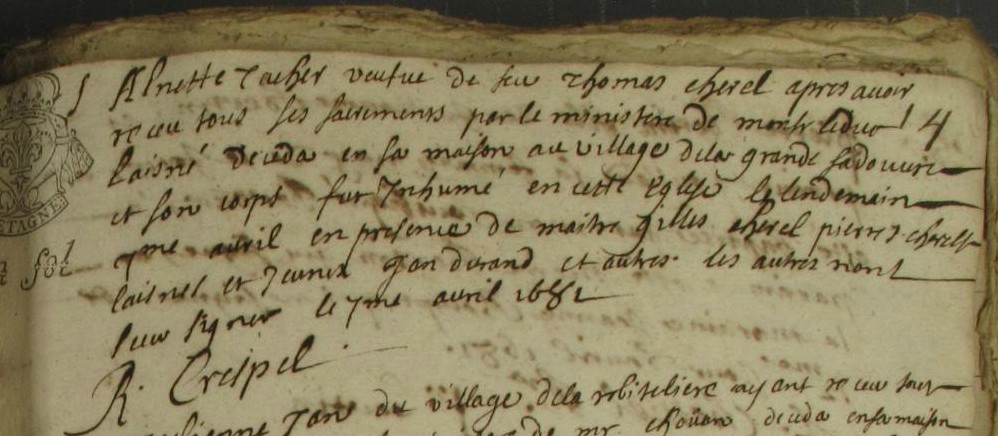 Alnette Tacher veufue de feu Thomas cherel apres auoir
receu tous ses sacrements par le ministere de monsr leduc 4
laisné deceda en sa maison au village dela grande sadouuere
et son corps fut Inhumé en cette Eglise le lendemain
7me auril en presence de maitre gilles cherel pierres cherels
laisnes et Jeunes Jan durand et autres les autres nont
sceu signer le 7me auril 1681
R. Crespel
Jan du village dela robiteliere ayant receu tous
de mr. chouan deceda en sa maison
ETAGNE
sol